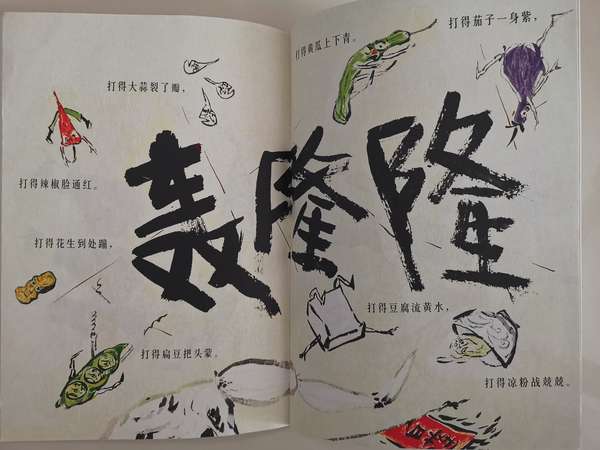 轰隆隆
打得茄子一身紫，
打得黄瓜上下青。
打得大蒜裂了瓣，
打得辣椒脸通红。
打得豆腐流黄水，
打得凉粉战兢兢。
打得花生到处蹦，
打得扁豆把头蒙。